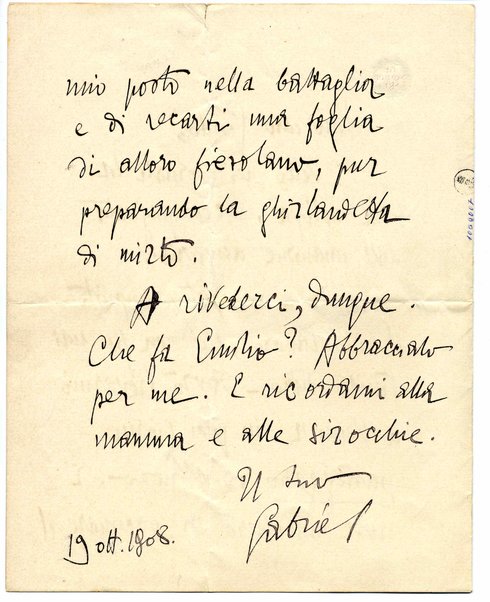 mio posto nella battaglia
e di recarti una foglia
di alloro fiesolano, pur
preparando la ghirlandetta
di mirto.
A rivederci, dunque.
Che fa Emilio? Abbraccialo
per me. E ricordami alla
mamma e alle sirocchie.
Il tuo
Gabriel
19 ott. 1908.